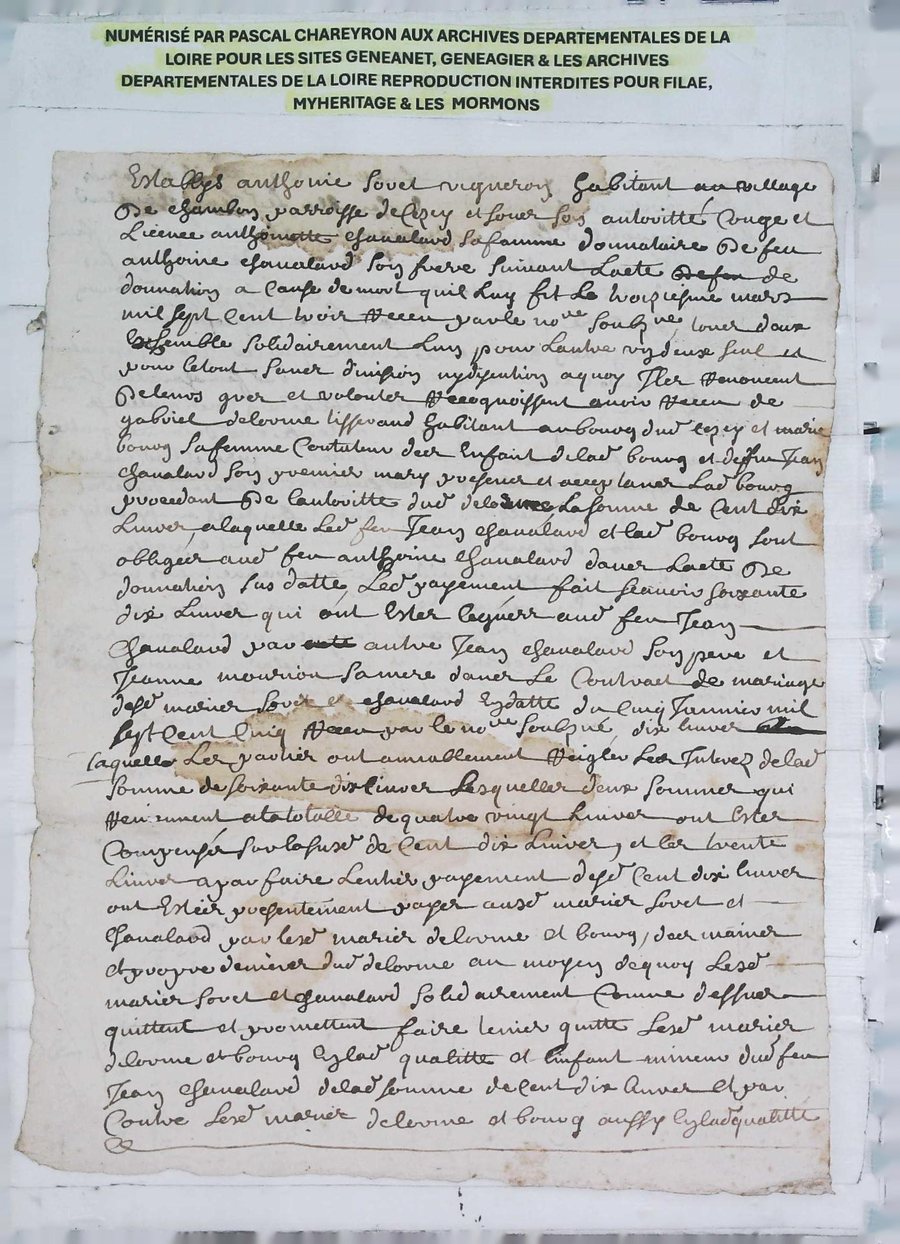 NUMÉRISÉ PAR PASCAL CHAREYRON AUX ARCHIVES DEPARTEMENTALES DE LA
LOIRE POUR LES SITES GENEANET, GENEAGIER & LES ARCHIVES
DEPARTEMENTALES DE LA LOIRE REPRODUCTION INTERDITES POUR FILAE,
MYHERITAGE & LES MORMONS
Establys anthoine sovet vigneron habitant au village
De chambon parroisse de Cezey et sous son autoritté Conge et
Licence anthoinette chavalard sa famme donnataire De feu
anthoine chavalard son frere suivant Lacte de
donnation a Cause de mort quil Luy fit Le troiziesme mars
mil sept Cent trois Receu par le no.re soubz.né, tous deux
Ensemble solidairement Lun pour Lautre un deux seul et
pour letout sanes division ny disention a quoy Ils Renoncent
Deleurs gres et volontes Recognoissent avoir Receu de
gabriel delorme tisserand habitant au bourg dud Cezey et marie
bourg sa femme Contuteur des Enfant delad bourg et deffeu Jean
chavalard son premier mary presenes et acceptanes Lad bourg
procedant De lautoritte dud delorme, La somme de Cent dix
Livres, a laquelle Led feu Jean chavalard et lad bourg sont
obliges aud feu anthoine chavalard danes Lacte De
donnation sus datte, Led payement fait scavoir soixante
dix Livres qui ont Estes legués aud feu Jean
Chavalard par autre Jean chavalard son pere et
Jeanne mourion sa mere danes Le Contract de mariage
desd maries sovet et chavalard En datte du Cinq Janvier mil
sept Cent Cinq Receu par le no.re soubzné, dix livres
Laquelle Les parties ont amiablement Reigles Les Interez delad
somme de soixante dix Livres Lesquelles deux sommes qui
Reviennent a la totalle de quatre vingt Livres ont Estes
Compensés sur lasusd de Cent dix Livres, et les trente
Livres a par faire Lentier payement desd Cent dix livres
ont Estées presentement payes ausd maries sovet et
Chavalard par lesd maries delorme et bourg, des maines
et propre denieres dud delorme au moyen dequoy Lesd
maries sovet et chavalard solidairement Comme dessus
quittent et promettent faire tenir quitte Lesd maries
delorme et bourg En lad qualitte et Linfant mineur dud feu
Jean Chavalard delad somme de Cent dix livres Et par
Contre Lesd maries delorme et bourg aussy En lad qualitté